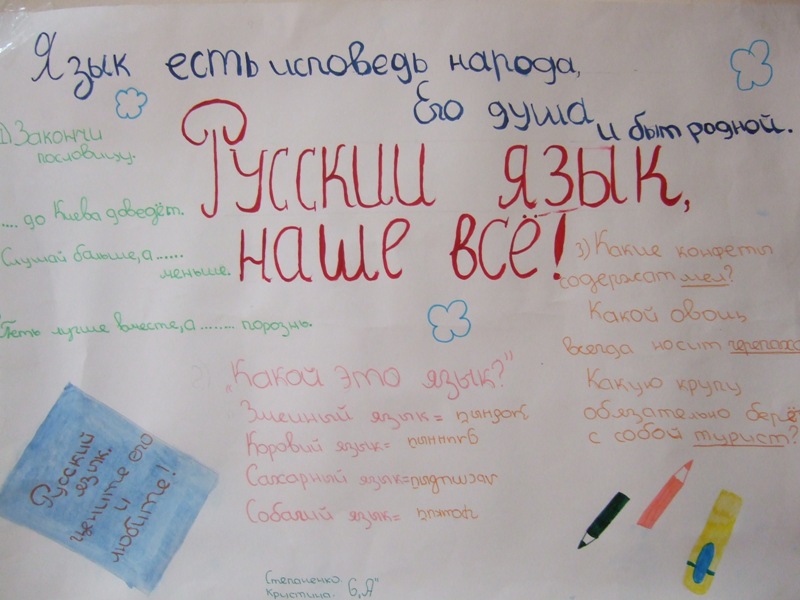 Язык есть исповедь народа,
Его душа и быт родной.
Русскии язык,
наше всё!
1) Закончи
пословицу.
.... до Киева доведёт.
Слушай больше, а ......
меньше.
Петь лучше вместе, а ........ порознь.
2) „Какой это язык?"
Змеиный язык=
Коровий язык=
Сахарный язык=
Собачий язык=
3) Какие конфеты
содержат мел?
Какой овощ
всегда носит черепаха
Какую крупу
обязательно берё
с собой турист?
Русский
язык.
цените его
и
любите!
Степаненко
Кристина. 6„А"